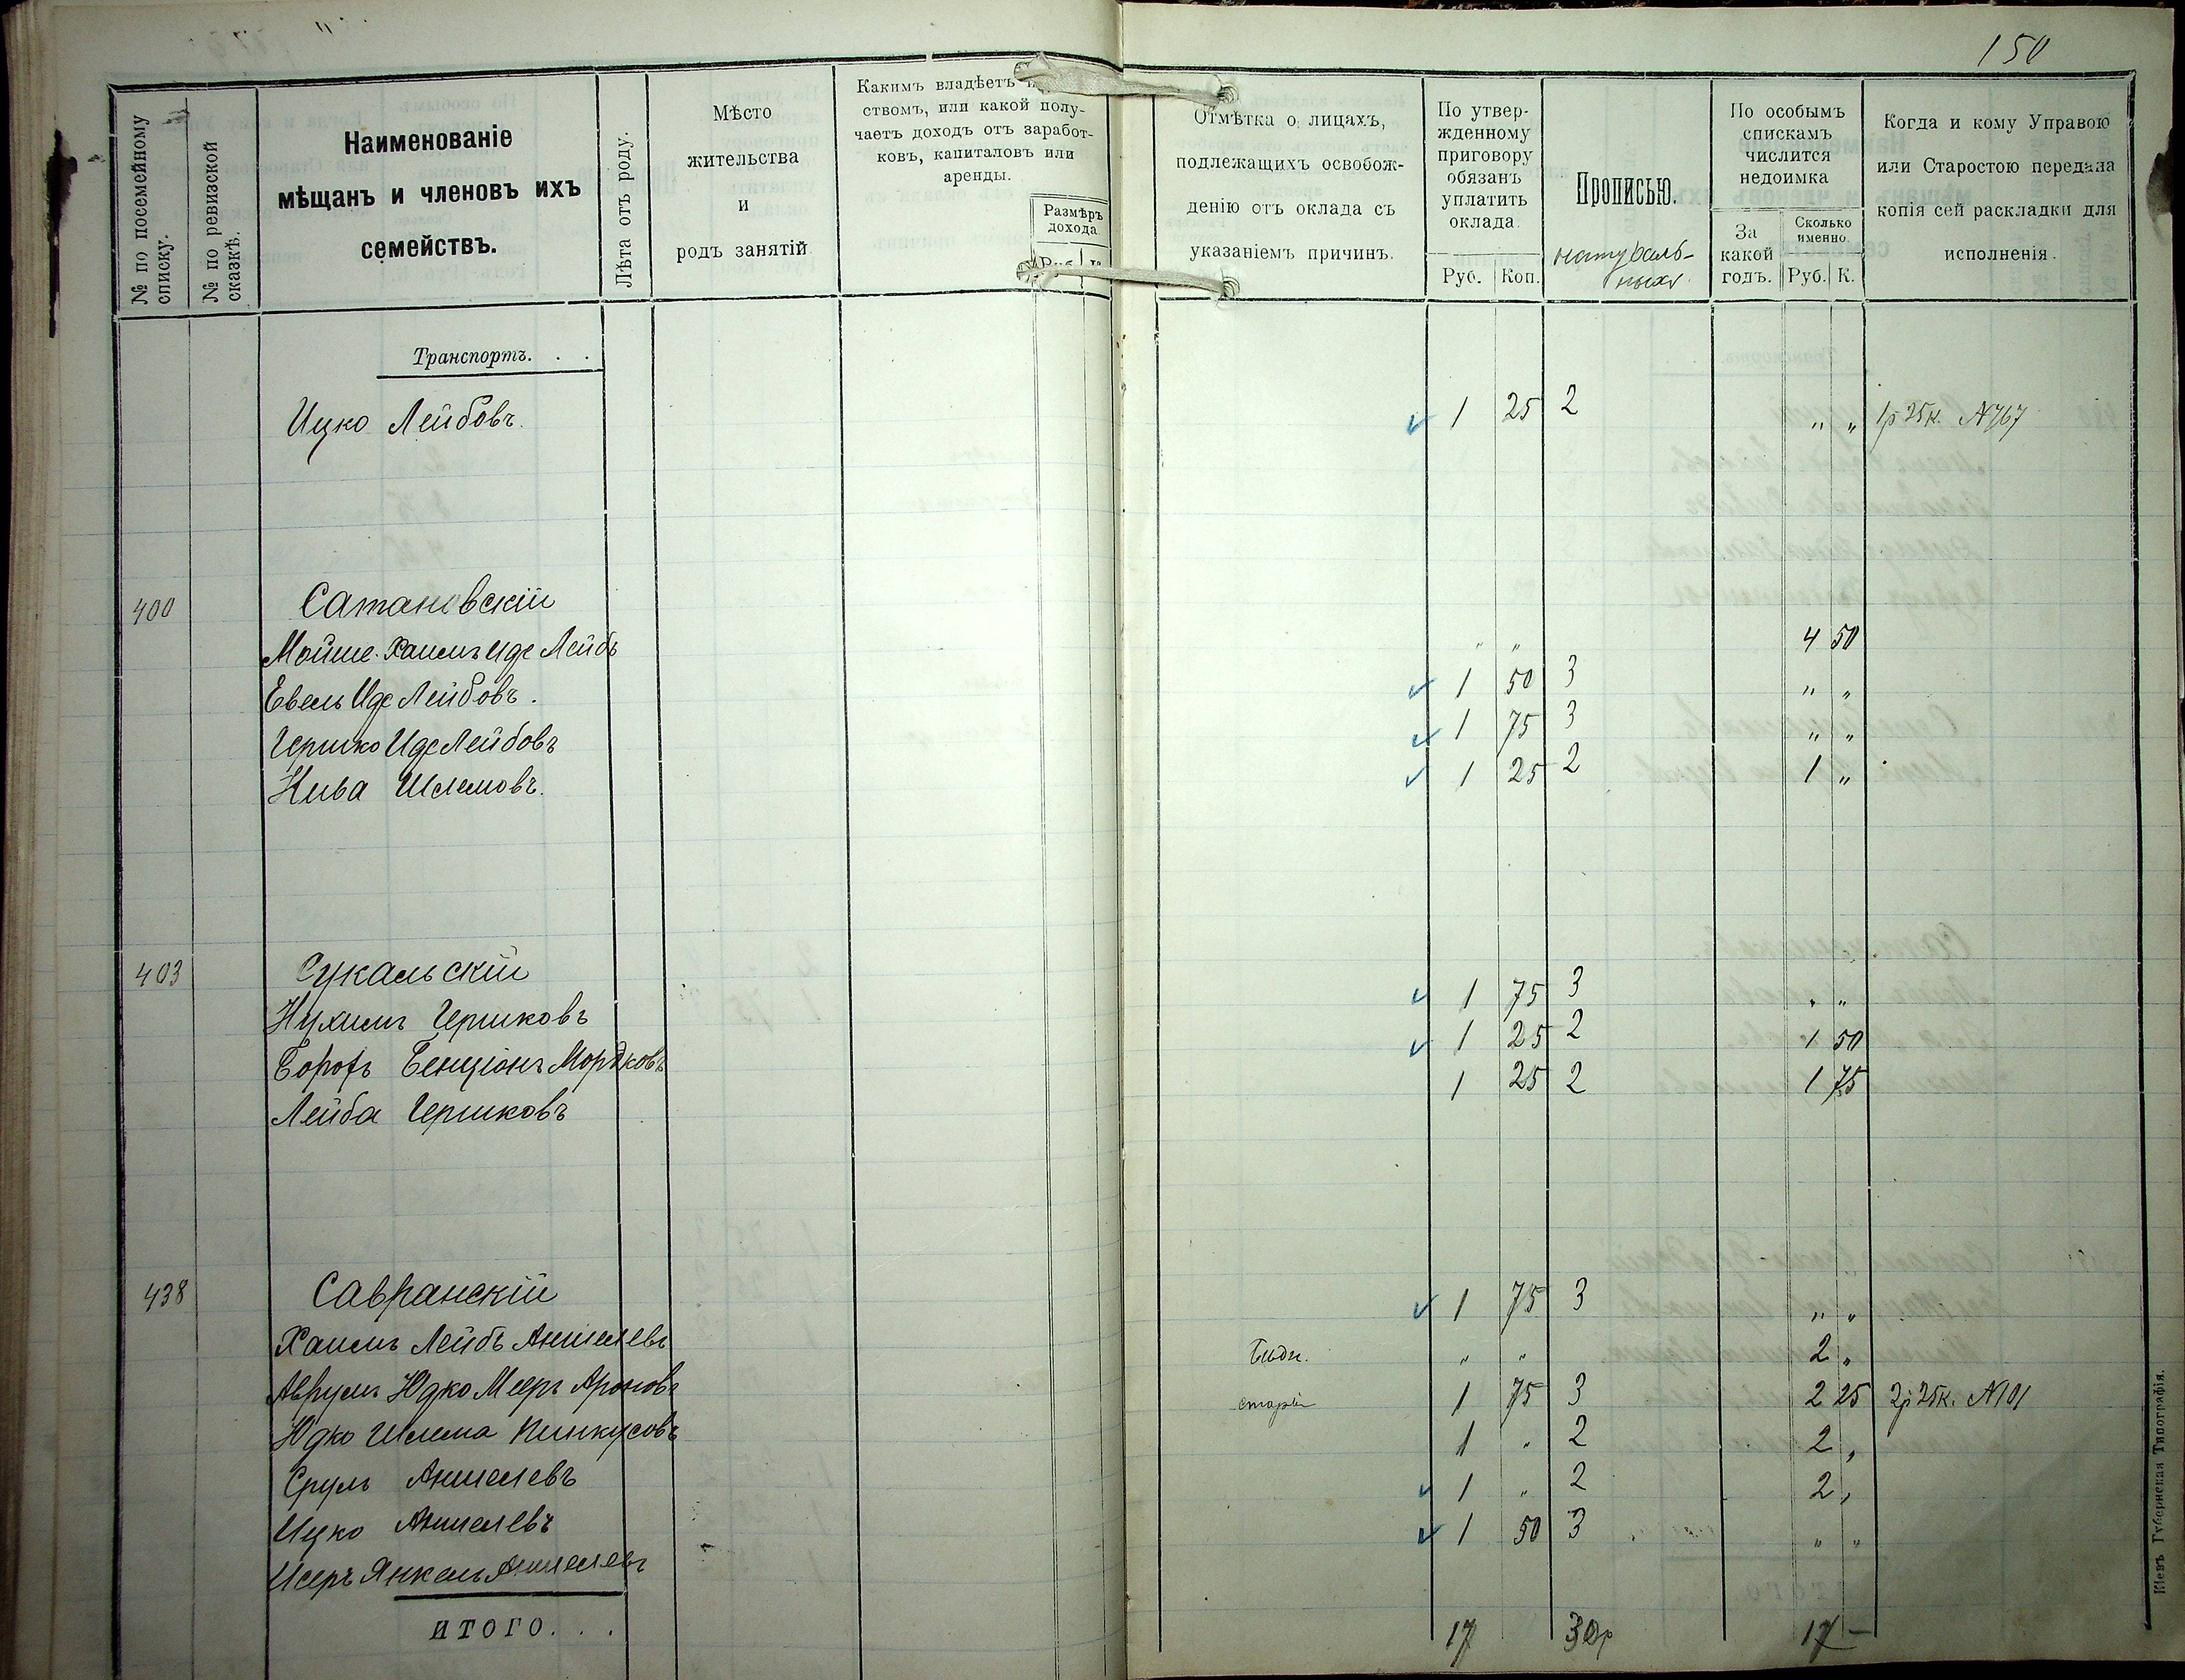 150
№ по посемейному списку.
№ по ревизской сказкѣ.
Наименованіе
мѣщанъ и членовъ ихъ
семействъ.
Лѣта отъ роду.
Мѣсто
жительства
и
родъ занятій
Какимъ владѣетъ
ствомъ, или какой полу-
чаетъ доходъ отъ заработ-
ковъ, капиталовъ или
аренды.
Размѣръ
дохода
Отмѣтка о лицахъ,
подлежащихъ освобож-
денію отъ оклада съ
указаніемъ причинъ.
По утвер-
жденному
приговору
обязанъ
уплатить
оклада.
Руб. Коп.
Прописью.
натураль-
ныхъ
По особымъ
спискамъ
числится
недоимка
За
какой
годъ.
Сколько
именно.
Руб. К.
Когда и кому Управою
или Старостою передана
копія сей раскладки для
исполненія.
Транспортъ. . .
Ицко Лейбовъ. 1 25 2 " " 1р 25к. №767
400 Сатановскій
Мойше Хаимъ Иде Лейбъ " " 4 50
Евель Иде Лейбовъ. 1 50 3 " "
Гершко Иде Лейбовъ 1 75 3 " "
Шлемовъ. 1 25 2 1 "
403 Сукальскій
Нухимъ Гершковъ 1 75 3 " "
Бенціонъ Мордковъ 1 25 2 1 50
Лейба Гершковъ 1 25 2 1 75
438 Савранскій
Хаимъ Лейбъ Аншелевъ 1 75 3 " "
Аврумъ Юдко Мееръ Ароновъ " " 2 "
Юдко Шлема Пинкусовъ старій 1 75 3 2 25 2р 25к. №101
Сруль Аншелевъ 1 " 2 2 "
Ицко Аншелевъ 1 " 2 2 "
Исеръ Янкель Аншелевъ 1 50 3 " "
ИТОГО. . . 17 30р 17 —
Кіевъ Губернская Типографія.